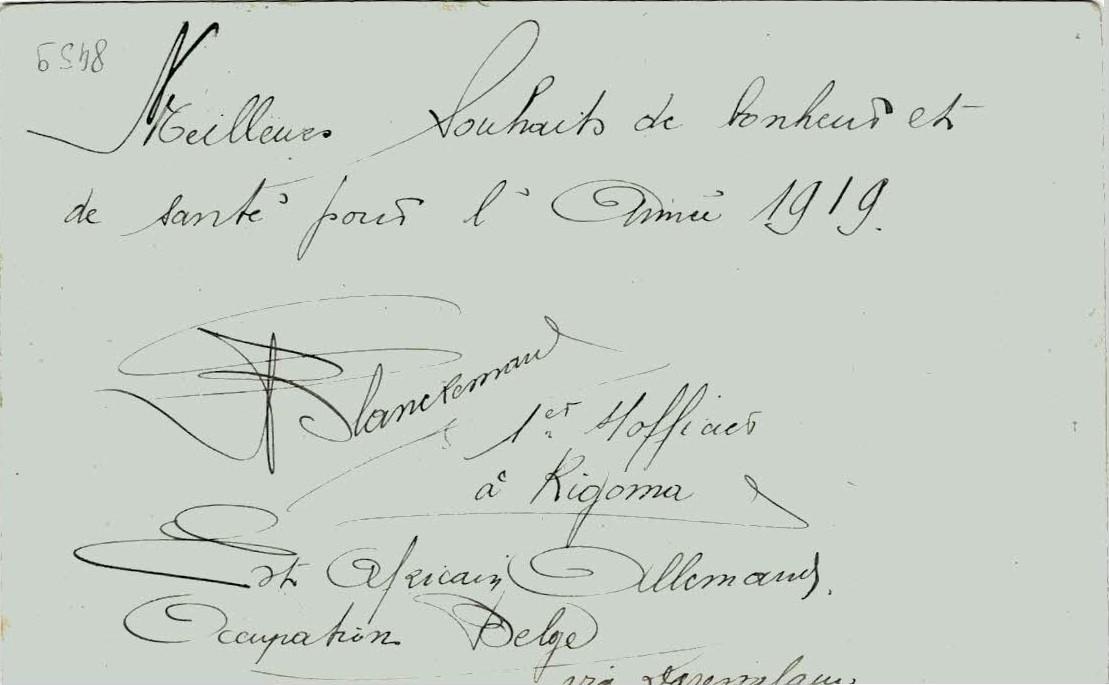 6548
Meilleurs Souhaits de bonheur et
de santé pour l'Année 1919.
1er S/officier
à Kigoma
Est Africain Allemand.
Occupation Belge
via